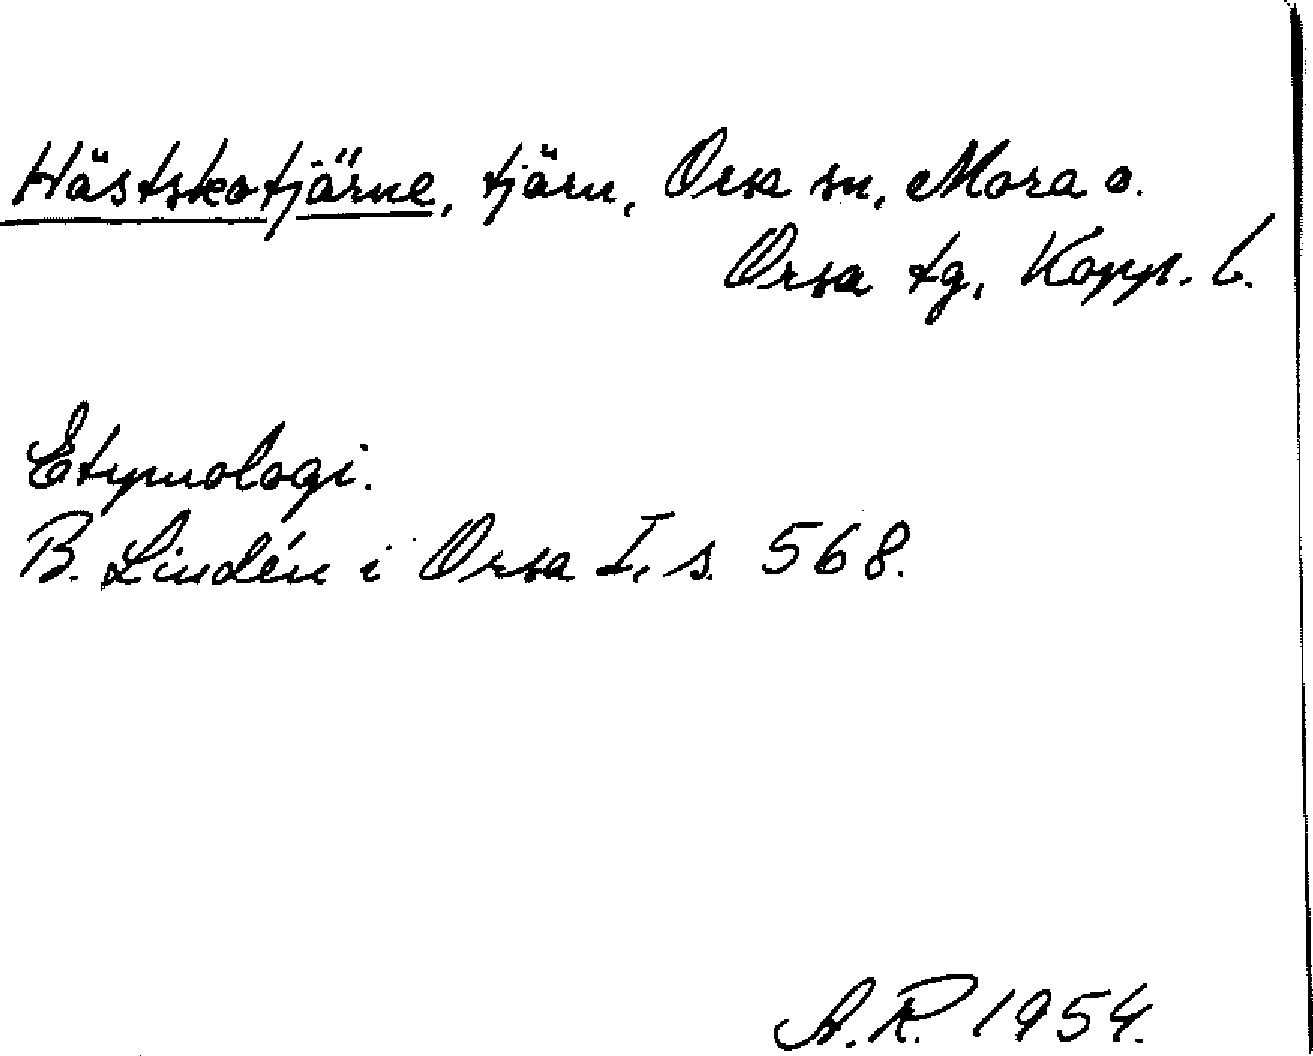 Hästskotjärne, tjärn, Orsa sn, Mora o.
Orsa tg, Kopp. l.
Etymologi.
B. Lindén i Orsa I, s. 568.
A.R. 1954.